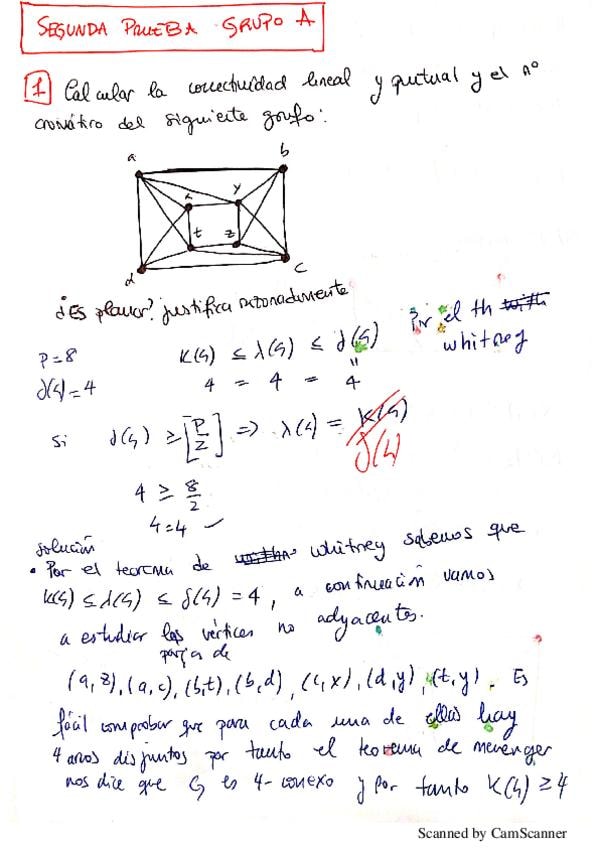 SEGUNDA PRUEBA GRUPO A
1 Calcular la conectividad lineal y puntual y el nº
cromático del siguiente grafo:
a
b
x
y
t
z
d
c
¿Es planar? justifica razonadamente
P=8
K(G) ≤ λ(G) ≤ δ(G) Por el th
whitney
δ(G)=4
4 = 4 = 4
Si δ(G) ≥ [P/2] ⇒ λ(G) = K(G)
δ(G)
4 ≥ 8/2
4=4 ✓
solución
• Por el teorema de whitney sabemos que
K(G) ≤ λ(G) ≤ δ(G) = 4, a continuación vamos
a estudiar los vértices no adyacentes.
pares de
(a,z), (a,c), (b,t), (b,d), (c,x), (d,y), (t,y). Es
fácil comprobar que para cada una de ellas hay
4 arcos disjuntos por tanto el teorema de menenger
nos dice que G es 4-conexo y por tanto K(G) ≥ 4
Scanned by CamScanner